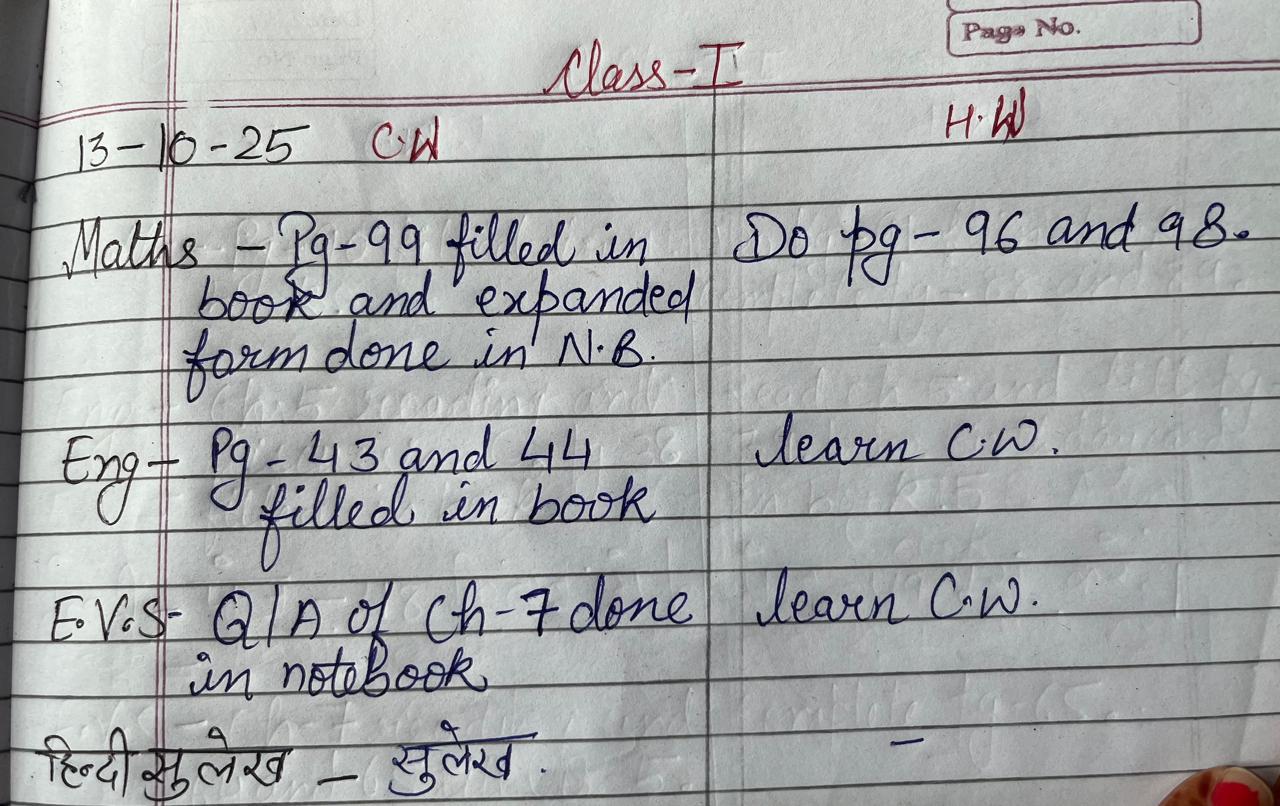 Page No.
Class-I
13-10-25 C.W H.W
Maths - Pg-99 filled in Do pg- 96 and 98.
book and expanded
form done in N.B.
Eng- Pg-43 and 44 learn C.W.
filled in book
E.V.S- Q/A of Ch-7 done learn C.W.
in notebook
हिन्दी सुलेख - सुलेख. -